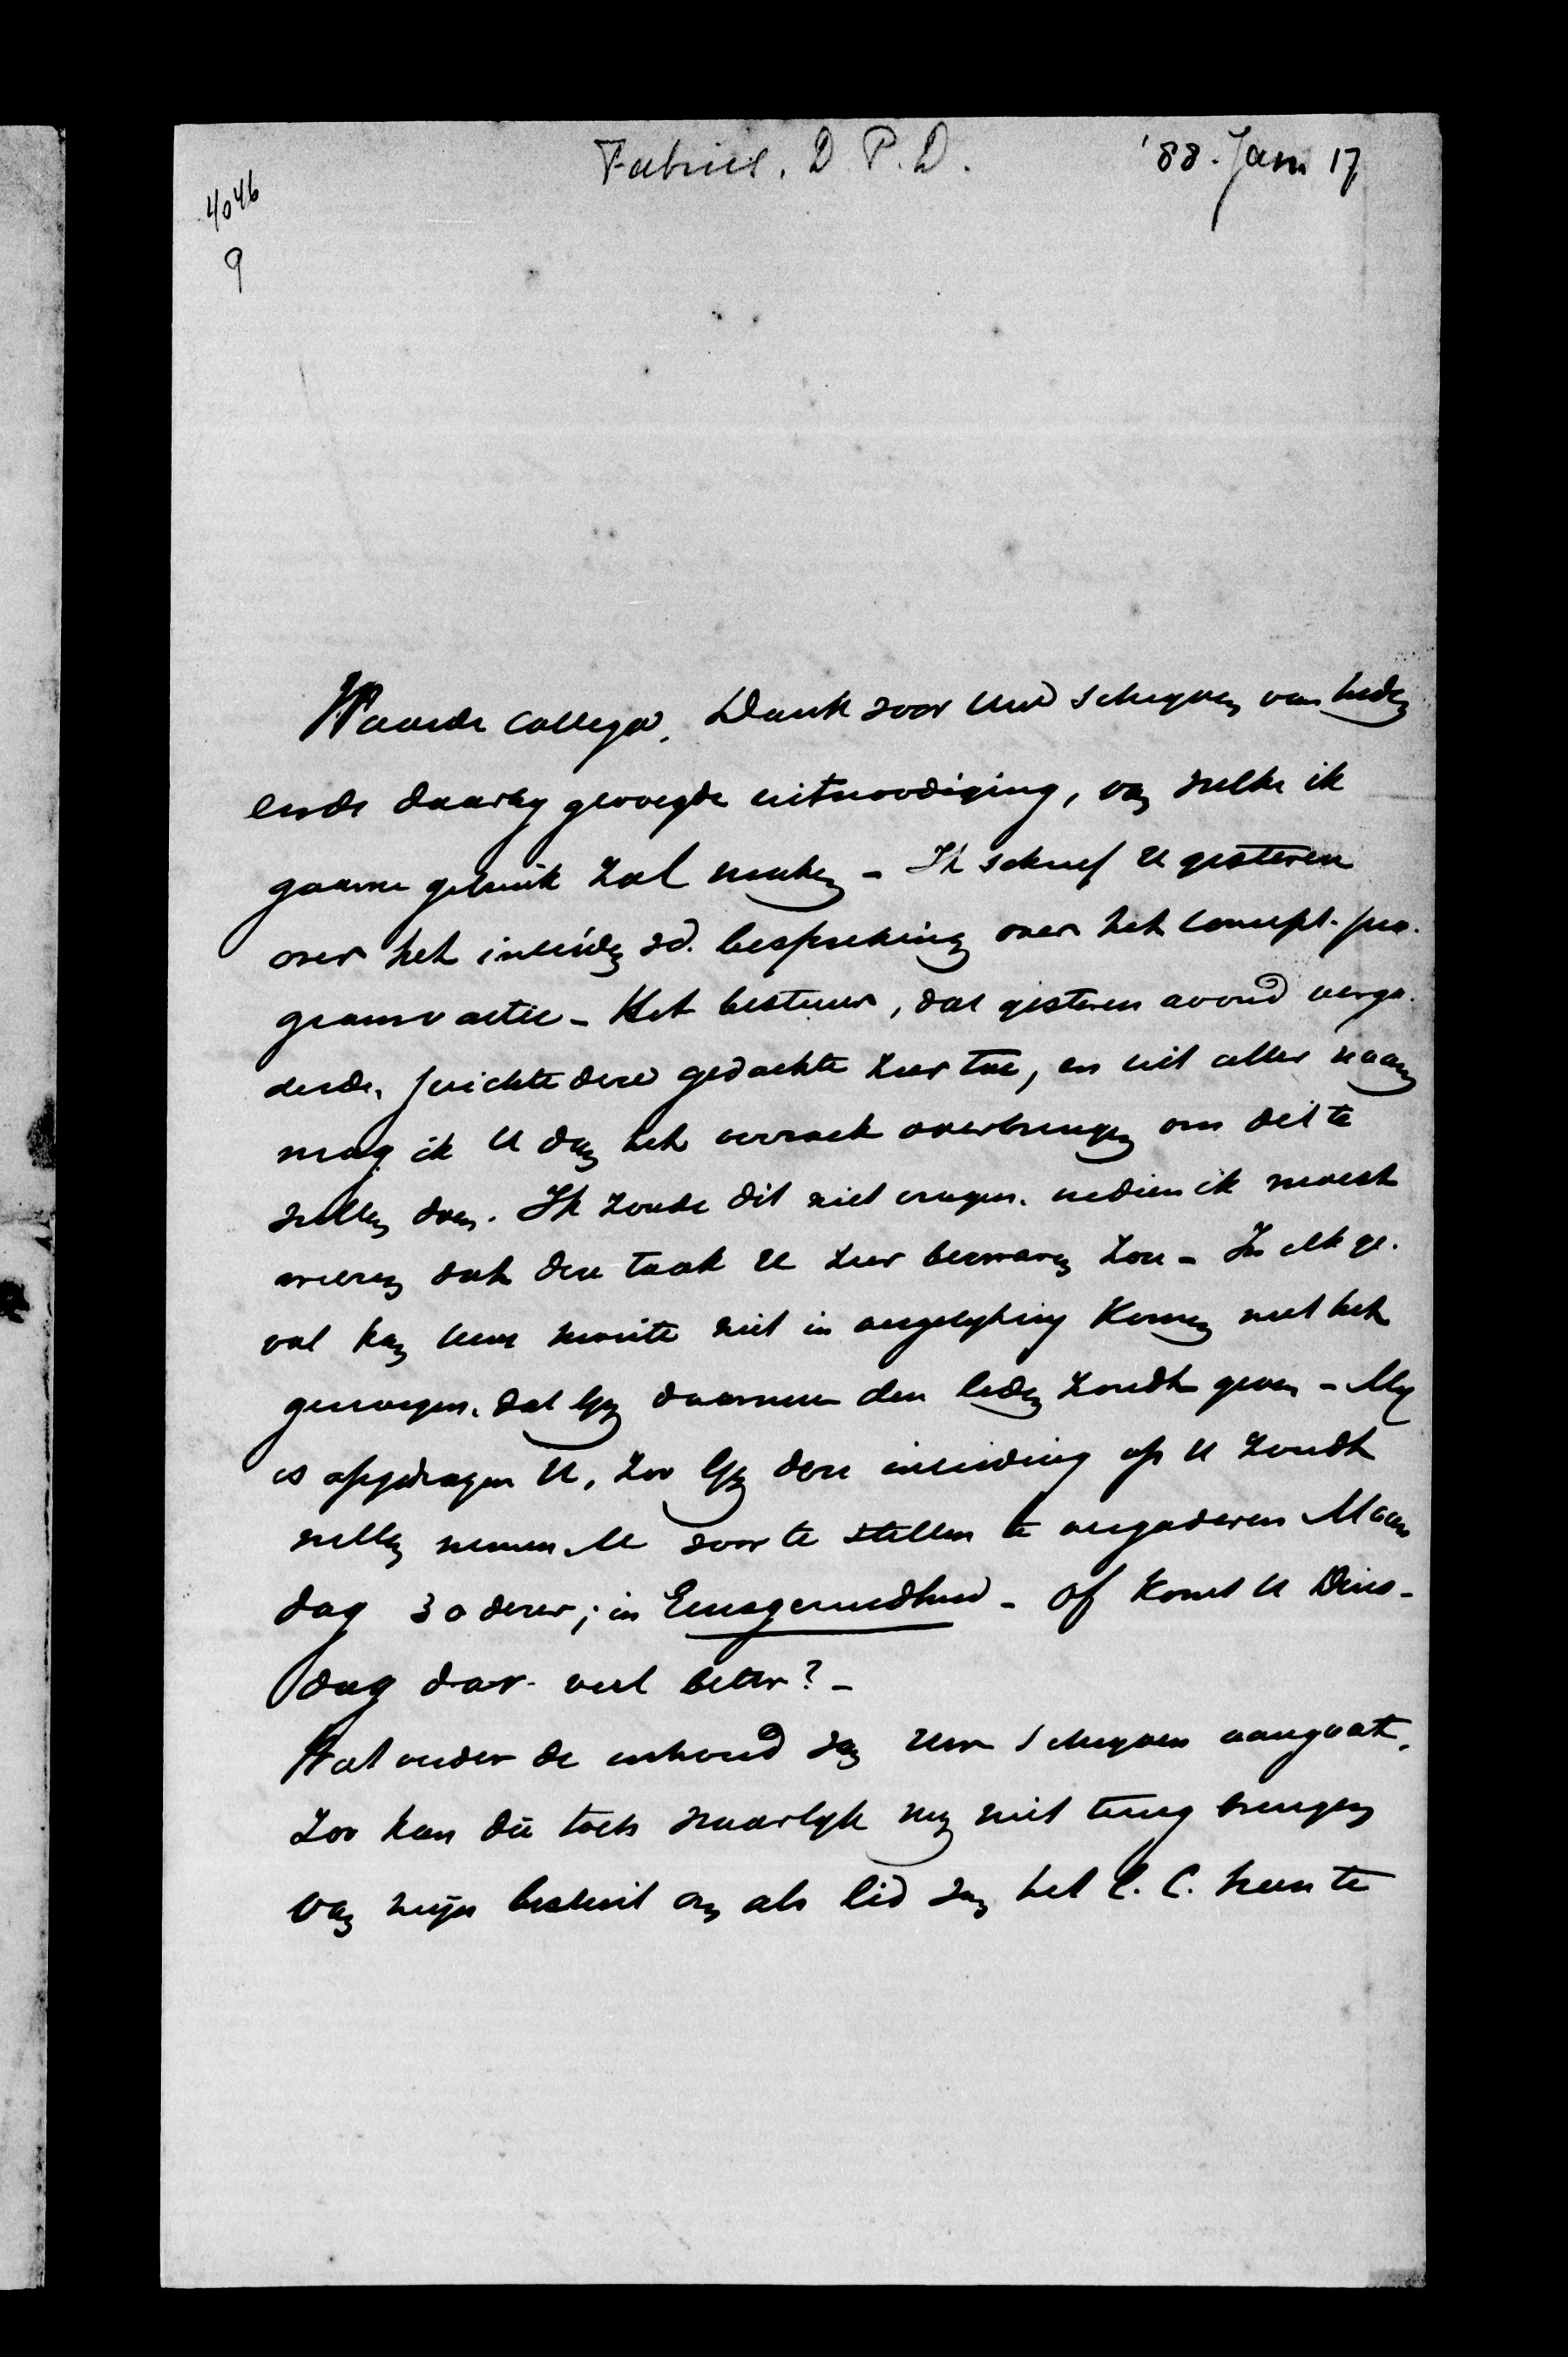 Fabius. D. P. D. '88. Jan 17
4046
9
Waarde collega. Dank voor Uw schrijven van heden
en de daarbij gevoegde uitnoodiging, van welke ik
gaarne gebruik zal maken – Ik schreef U gisteren
over het inleiden v.d. bespreking over het concept-pro-
gram v actie – Het bestuur, dat gisteren avond verga-
derde, juichte deze gedachte zeer toe, en uit aller naam
mag ik U dan het verzoek overbrengen om dit te
willen doen. Ik zoude dit niet vragen, indien ik moest
meenen dat deze taak U zeer bezwaren zou – In elk ge-
val kan Uwe moeite niet in vergelijking komen met het
genoegen, dat Gij daarmee den leden zoudt geven – Mij
is opgedragen U, zoo Gij deze inleiding op U zoudt
willen nemen U voor te stellen te vergaderen Maan
dag 30 dezer; in Eensgezindheid – Of komt U Dins-
dag dar. veel beter? –
Wat verder de inhoud van Uw schrijven aangaat,
zoo kan die toch waarlijk mij niet terug brengen
van mijn besluit om als lid van het C. C. heen te